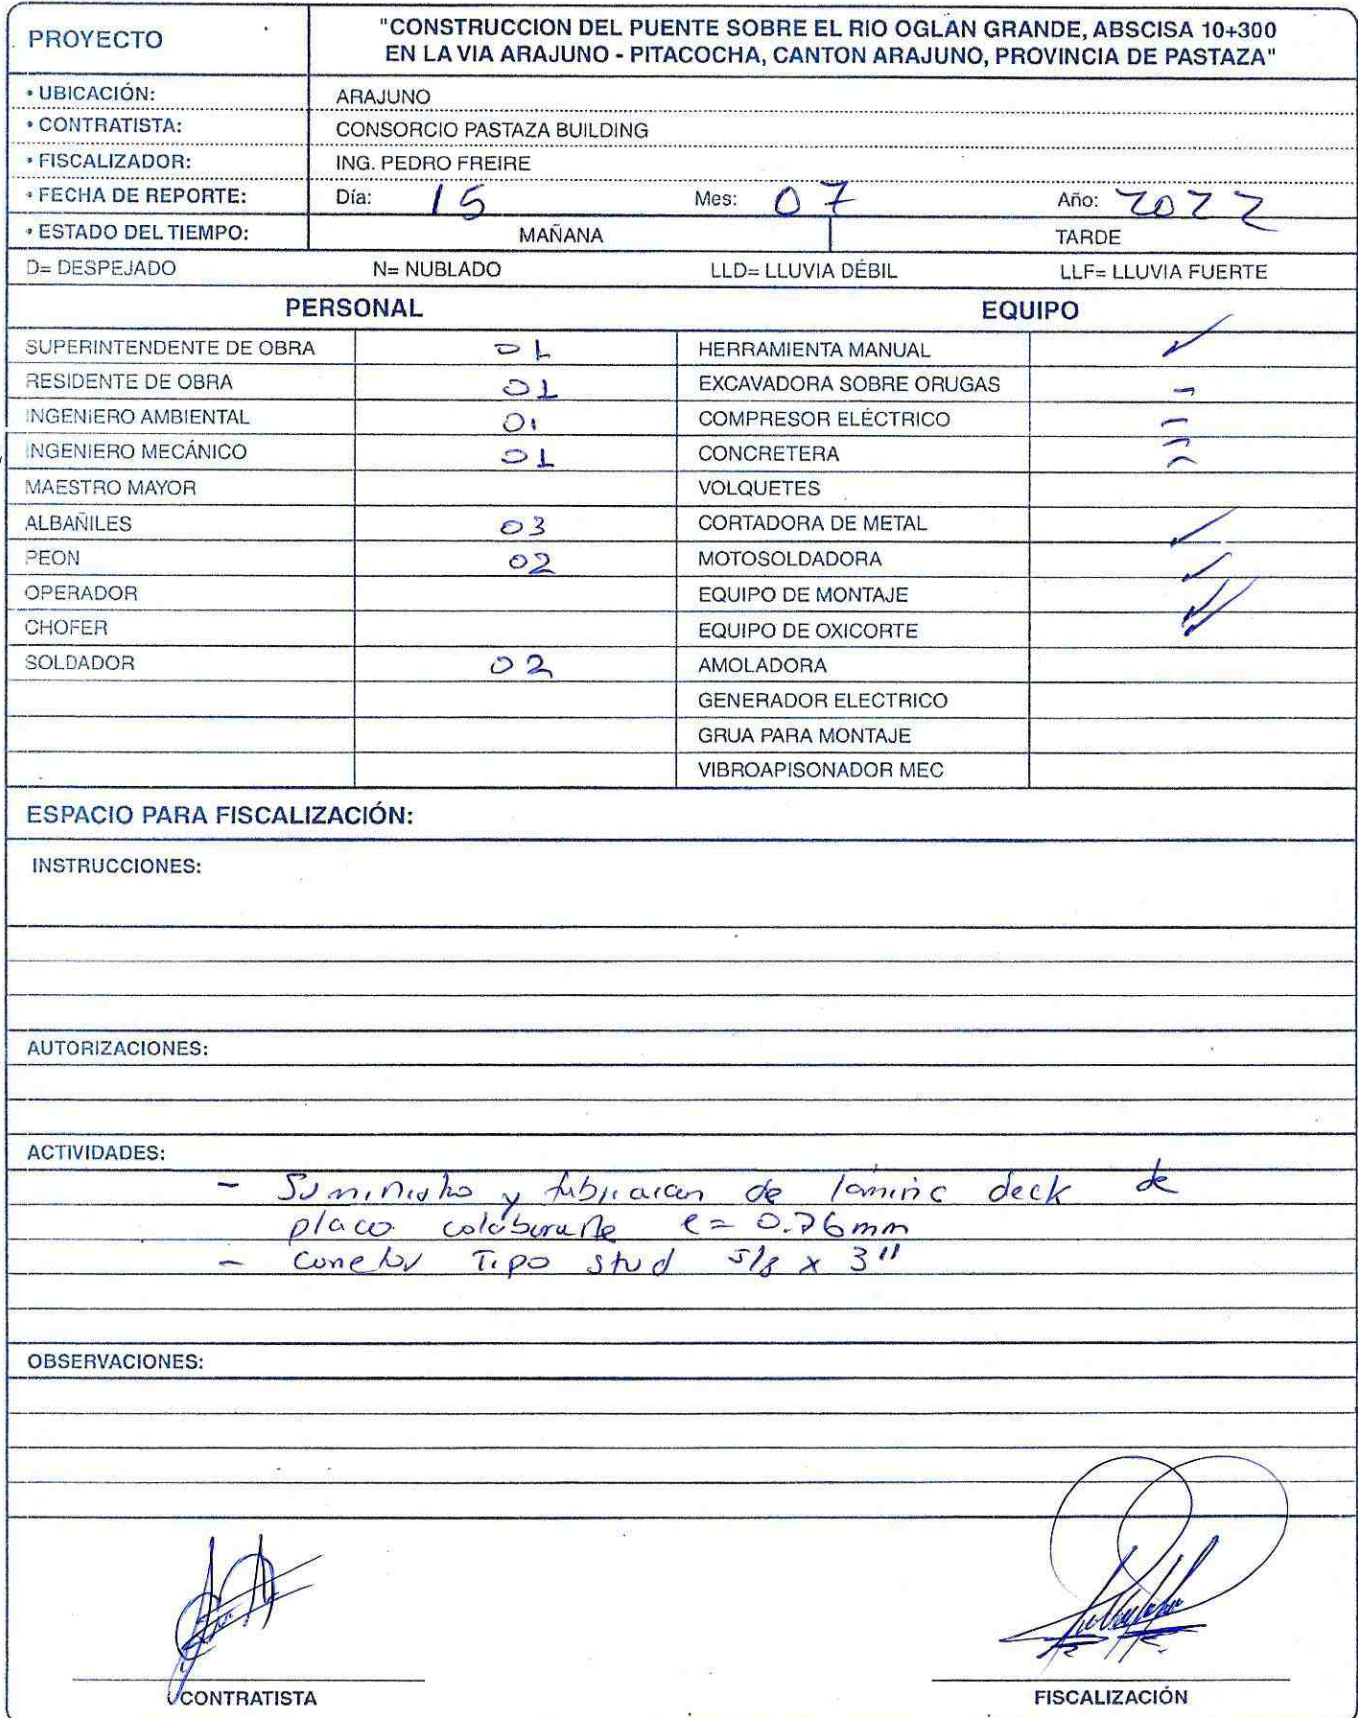 PROYECTO
"CONSTRUCCION DEL PUENTE SOBRE EL RIO OGLAN GRANDE, ABSCISA 10+300
EN LA VIA ARAJUNO - PITACOCHA, CANTON ARAJUNO, PROVINCIA DE PASTAZA"
• UBICACIÓN: ARAJUNO
• CONTRATISTA: CONSORCIO PASTAZA BUILDING
• FISCALIZADOR: ING. PEDRO FREIRE
• FECHA DE REPORTE: Día: 15 Mes: 07 Año: 2022
• ESTADO DEL TIEMPO: MAÑANA TARDE
D= DESPEJADO N= NUBLADO LLD= LLUVIA DÉBIL LLF= LLUVIA FUERTE
PERSONAL EQUIPO
SUPERINTENDENTE DE OBRA 01 HERRAMIENTA MANUAL ✓
RESIDENTE DE OBRA 01 EXCAVADORA SOBRE ORUGAS -
INGENIERO AMBIENTAL 01 COMPRESOR ELÉCTRICO -
INGENIERO MECÁNICO 01 CONCRETERA -
MAESTRO MAYOR VOLQUETES
ALBAÑILES 03 CORTADORA DE METAL ✓
PEON 02 MOTOSOLDADORA ✓
OPERADOR EQUIPO DE MONTAJE ✓
CHOFER EQUIPO DE OXICORTE ✓
SOLDADOR 02 AMOLADORA
GENERADOR ELECTRICO
GRUA PARA MONTAJE
VIBROAPISONADOR MEC
ESPACIO PARA FISCALIZACIÓN:
INSTRUCCIONES:
AUTORIZACIONES:
ACTIVIDADES:
- Suministro y fabricacion de lamina deck de
placa colaborante e= 0.76mm
- Conector Tipo stud 5/8 x 3"
OBSERVACIONES:
CONTRATISTA FISCALIZACIÓN